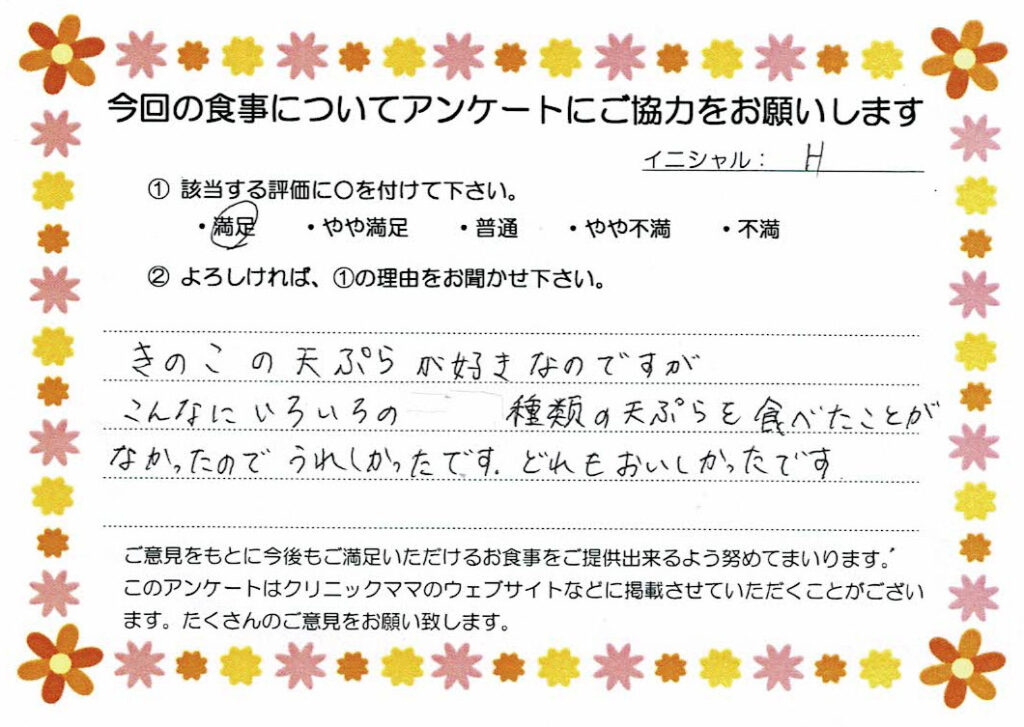 今回の食事についてアンケートにご協力をお願いします
イニシャル： H
① 該当する評価に〇を付けて下さい。
・満足 ・やや満足 ・普通 ・やや不満 ・不満
② よろしければ、①の理由をお聞かせ下さい。
きのこの天ぷらが好きなのですが
こんなにいろいろの 種類の天ぷらを食べたことが
なかったので うれしかったです. どれもおいしかったです
ご意見をもとに今後もご満足いただけるお食事をご提供出来るよう努めてまいります。
このアンケートはクリニックママのウェブサイトなどに掲載させていただくことがござい
ます。たくさんのご意見をお願い致します。